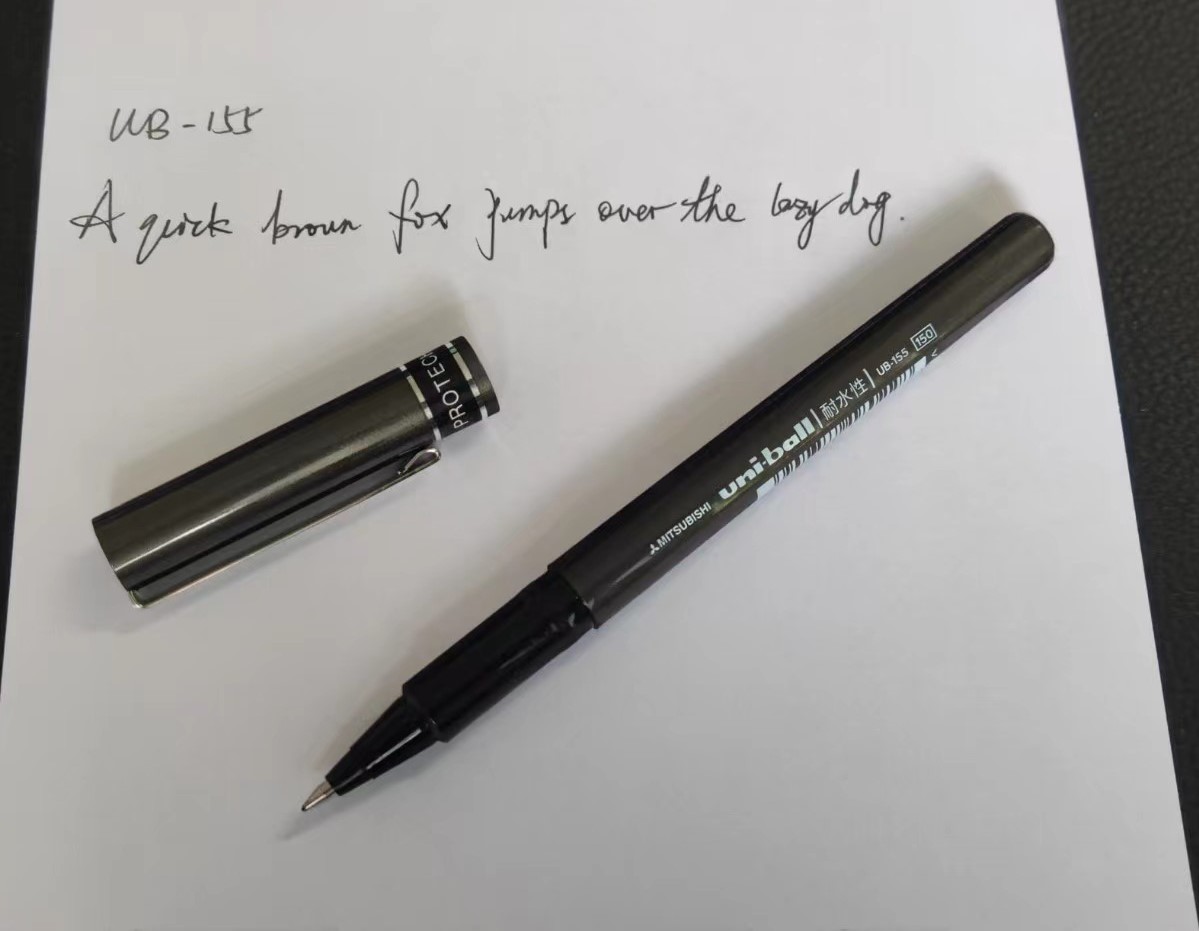 UB-155
A quick brown fox jumps over the lazy dog.
PROTECH
MITSUBISHI uni-ball 耐水性 UB-155 150